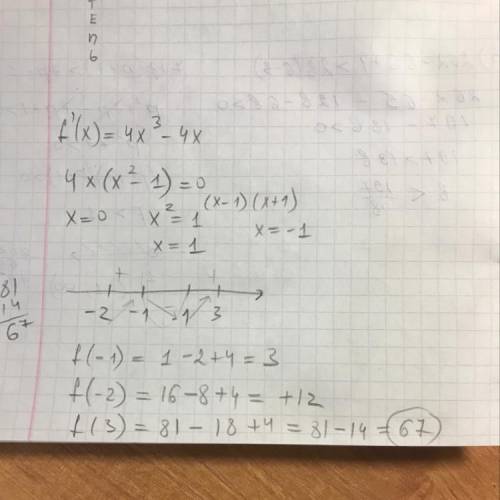 T
E
n
б
f'(x) = 4x³ - 4x
4x(x² - 1) = 0
x = 0 x² = 1 (x-1)(x+1)
x = 1 x = -1
+ +
-2 -1 1 3
81
14
67
f(-1) = 1 - 2 + 4 = 3
f(-2) = 16 - 8 + 4 = +12
f(3) = 81 - 18 + 4 = 81 - 14 = 67